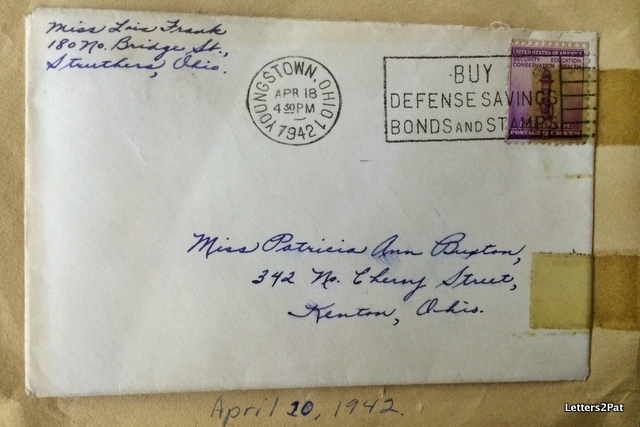 Miss Lois Frank
180 No. Bridge St.,
Struthers, Ohio.
YOUNGSTOWN, OHIO 1
APR 18
4 30 PM
1942
BUY
DEFENSE SAVINGS
BONDS AND STAMPS
UNITED STATES OF AMERICA
SECURITY EDUCATION
CONSERVATION HEALTH
POSTAGE 3 CENTS
Miss Patricia Ann Buxton,
342 No. Cherry Street,
Kenton, Ohio.
April 20, 1942.
Letters2Pat